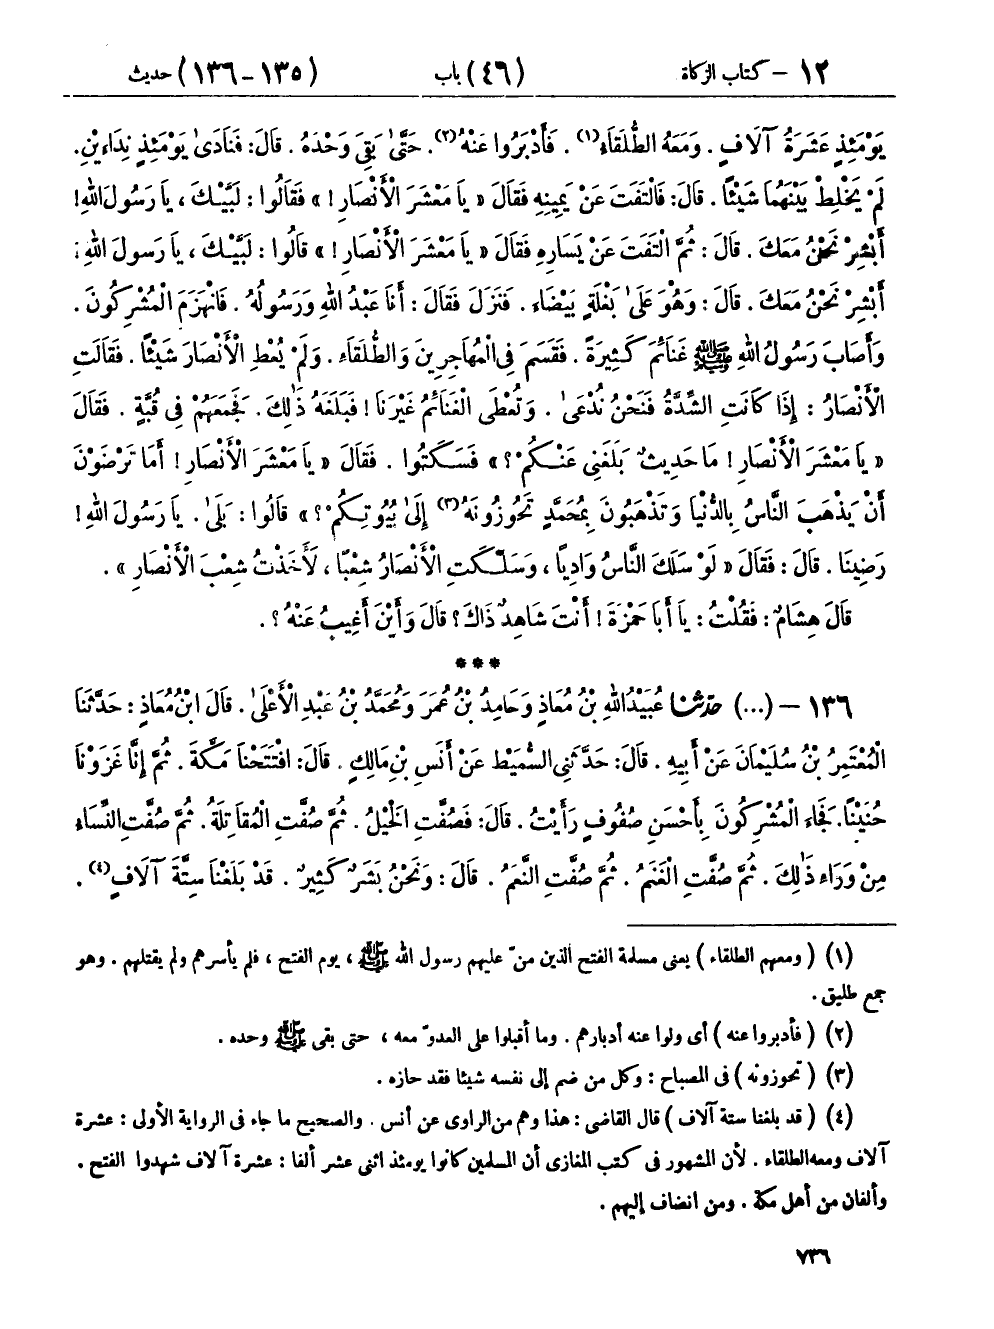 ١٢ – كتاب الزكاة (٤٦) باب (١٣٥-١٣٦) حديث
يَوْمَئِذٍ عَشَرَةُ آلَافٍ . وَمَعَهُ الطُّلَقَاءُ(١) . فَأَدْبَرُوا عَنْهُ(٢). حَتَّىٰ بَقِيَ وَحْدَهُ . قَالَ: فَنَادَىٰ يَوْمَئِذٍ نِدَاءَيْنِ.
لَمْ يَخْلِطْ بَيْنَهُمَا شَيْئًا . قَالَ: فَالْتَفَتَ عَنْ يَمِينِهِ فَقَالَ « يَا مَعْشَرَ الْأَنْصَارِ ! » فَقَالُوا : لَبَّيْكَ ، يَا رَسُولَ اللهِ!
أَبْشِرْ نَحْنُ مَعَكَ . قَالَ : ثُمَّ الْتَفَتَ عَنْ يَسَارِهِ فَقَالَ « يَا مَعْشَرَ الْأَنْصَارِ ! » قَالُوا : لَبَّيْكَ ، يَا رَسُولَ اللهِ !
أَبْشِرْ نَحْنُ مَعَكَ . قَالَ : وَهُوَ عَلَىٰ بَغْلَةٍ بَيْضَاءَ . فَنَزَلَ فَقَالَ : أَنَا عَبْدُ اللهِ وَرَسُولُهُ . فَانْهَزَمَ الْمُشْرِكُونَ .
وَأَصَابَ رَسُولُ اللهِ ﷺ غَنَائِمَ كَثِيرَةً . فَقَسَمَ فِي الْمُهَاجِرِينَ وَالطُّلَقَاءِ . وَلَمْ يُعْطِ الْأَنْصَارَ شَيْئًا . فَقَالَتِ
الْأَنْصَارُ : إِذَا كَانَتِ الشِّدَّةُ فَنَحْنُ نُدْعَىٰ . وَتُعْطَى الْغَنَائِمُ غَيْرَنَا ! فَبَلَغَهُ ذَٰلِكَ . فَجَمَعَهُمْ فِي قُبَّةٍ . فَقَالَ
« يَا مَعْشَرَ الْأَنْصَارِ ! مَا حَدِيثٌ بَلَغَنِي عَنْكُمْ ؟ » فَسَكَتُوا . فَقَالَ « يَا مَعْشَرَ الْأَنْصَارِ ! أَمَا تَرْضَوْنَ
أَنْ يَذْهَبَ النَّاسُ بِالدُّنْيَا وَتَذْهَبُونَ بِمُحَمَّدٍ تَحُوزُونَهُ(٣) إِلَىٰ بُيُوتِكُمْ ؟ » قَالُوا : بَلَىٰ . يَا رَسُولَ اللهِ !
رَضِينَا . قَالَ : فَقَالَ « لَوْ سَلَكَ النَّاسُ وَادِيًا ، وَسَلَكَتِ الْأَنْصَارُ شِعْبًا ، لَأَخَذْتُ شِعْبَ الْأَنْصَارِ » .
قَالَ هِشَامٌ : فَقُلْتُ : يَا أَبَا حَمْزَةَ ! أَنْتَ شَاهِدٌ ذَاكَ ؟ قَالَ وَأَيْنَ أَغِيبُ عَنْهُ ؟ .
***
١٣٦ – (...) حدّثنا عُبَيْدُ اللهِ بْنُ مُعَاذٍ وَحَامِدُ بْنُ عُمَرَ وَمُحَمَّدُ بْنُ عَبْدِ الْأَعْلَىٰ . قَالَ ابْنُ مُعَاذٍ : حَدَّثَنَا
الْمُعْتَمِرُ بْنُ سُلَيْمَانَ عَنْ أَبِيهِ . قَالَ: حَدَّثَنِي السُّمَيْطُ عَنْ أَنَسِ بْنِ مَالِكٍ . قَالَ: افْتَتَحْنَا مَكَّةَ . ثُمَّ إِنَّا غَزَوْنَا
حُنَيْنًا. فَجَاءَ الْمُشْرِكُونَ بِأَحْسَنِ صُفُوفٍ رَأَيْتُ . قَالَ: فَصُفَّتِ الْخَيْلُ . ثُمَّ صُفَّتِ الْمُقَاتِلَةُ . ثُمَّ صُفَّتِ النِّسَاءُ
مِنْ وَرَاءِ ذَٰلِكَ . ثُمَّ صُفَّتِ الْغَنَمُ . ثُمَّ صُفَّتِ النَّعَمُ . قَالَ : وَنَحْنُ بَشَرٌ كَثِيرٌ . قَدْ بَلَغْنَا سِتَّةَ آلَافٍ(٤) .
(١) ( ومعهم الطلقاء ) يعنى مسلمة الفتح الذين منّ عليهم رسول الله ﷺ ، يوم الفتح ، فلم يأسرهم ولم يقتلهم . وهو
جمع طليق .
(٢) ( فأدبروا عنه ) أى ولوا عنه أدبارهم . وما أقبلوا على العدوّ معه ، حتى بقى ﷺ وحده .
(٣) ( تحوزونه ) فى المصباح : وكل من ضم إلى نفسه شيئا فقد حازه .
(٤) ( قد بلغنا ستة آلاف ) قال القاضى : هذا وهم من الراوى عن أنس . والصحيح ما جاء فى الرواية الأولى : عشرة
آلاف ومعه الطلقاء . لأن المشهور فى كتب المغازى أن المسلمين كانوا يومئذ اثنى عشر ألفا : عشرة آلاف شهدوا الفتح .
وألفان من أهل مكة . ومن انضاف إليهم .
٧٣٦